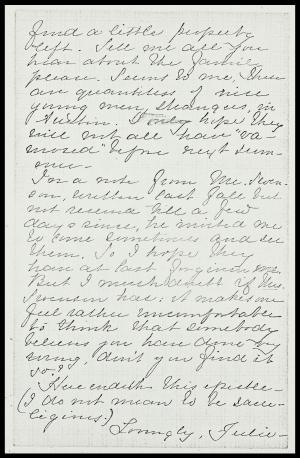 find a little property
left. Tell me all you
hear about the family
please. Seems to me, there
are quantities of nice
young men, strangers, in
Austin. I only hope they
will not all have "va-
mosed" before next sum-
mer.
In a note from Mr. Swen-
son, written last fall but
not received till a few
days since, he invited me
to come sometimes and see
them. So I hope they
have at last forgiven me.
But I much doubt if Mrs.
Swenson has: it makes one
feel rather uncomfortable
to think that somebody
believes you have done
wrong, don't you find it
so?
Here endeth this epistle—
(I do not mean to be sacri-
ligious.)
Lovingly, Julie—